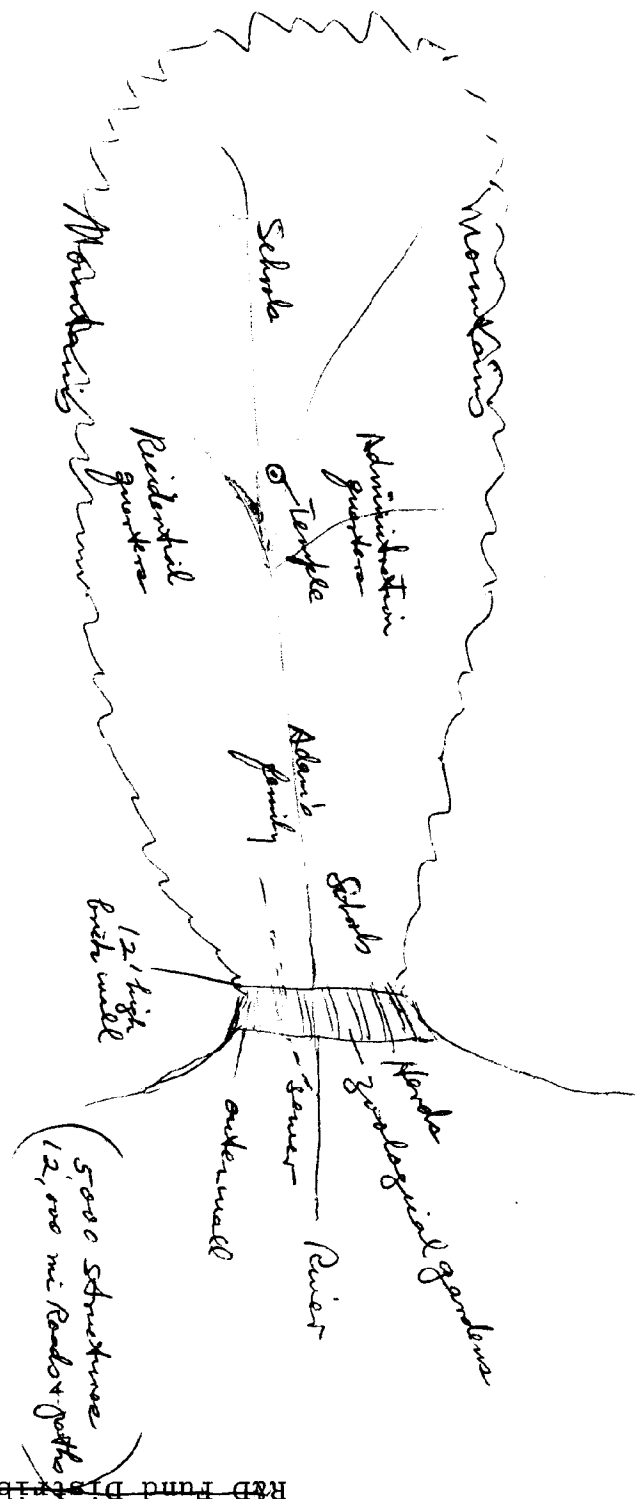 Mountains
Schools
Mountains
Administration
quarters
Temple
Residential
quarters
Adam's
family
Schools
12' high
brick wall
Herds
Zoological gardens
River
Sewer
outer wall
5000 structures
12,000 mi Roads + paths
R&D Fund Distrib